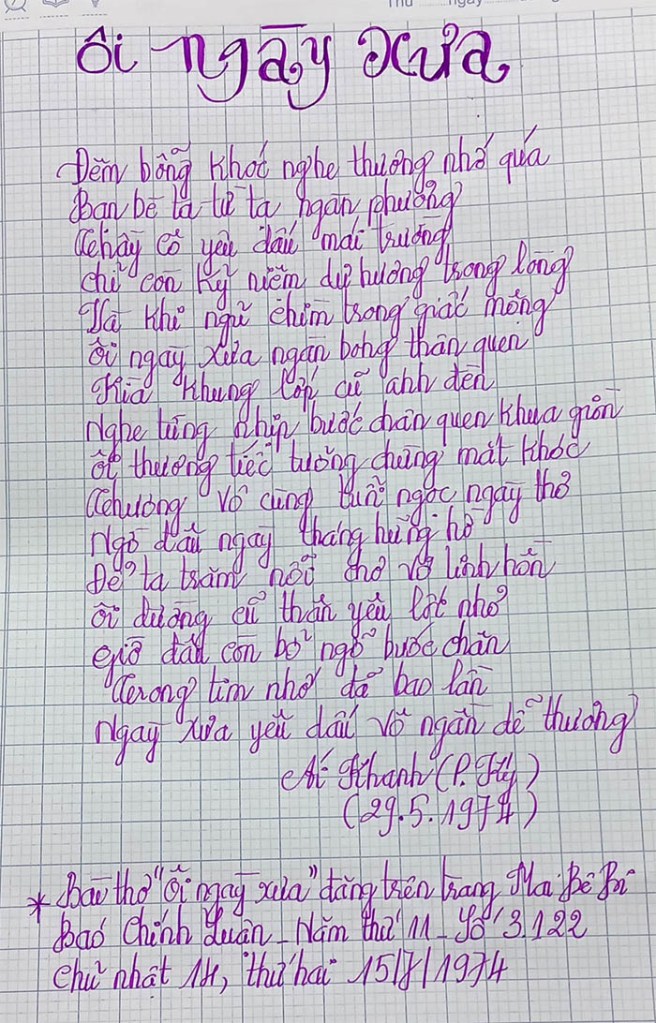 Thu ngay
Ôi ngày xưa
Đêm bỗng khóc nghe thương nhớ quá
Bạn bè ta từ tạ ngàn phương
Thầy cô yêu dấu mái trường
chỉ còn kỷ niệm dư hương trong lòng
Và khi ngủ chìm trong giấc mộng
Ôi ngày xưa ngàn bóng thân quen
Kìa khung lớp cũ ánh đèn
Nghe từng nhịp bước chân quen khua giòn
Ôi thương tiếc tưởng chừng mắt khóc
Thương vô cùng tuổi ngọc ngày thơ
Ngờ đâu ngày tháng hững hờ
Để ta trăm nỗi chơ vơ linh hồn
Ôi đường cũ thân yêu lối nhỏ
giờ đâu còn bỡ ngỡ bước chân
Trong tim nhớ đã bao lần
Ngày xưa yêu dấu vô ngần dễ thương
Ái Khanh (P. Ký)
(29.5.1974)
* Bài thơ "Ôi ngày xưa" đăng trên trang Mai Bê Bi
Báo Chính Luận - Năm thứ 11 - Số 3.122
chủ nhật 14, thứ hai 15/7/1974